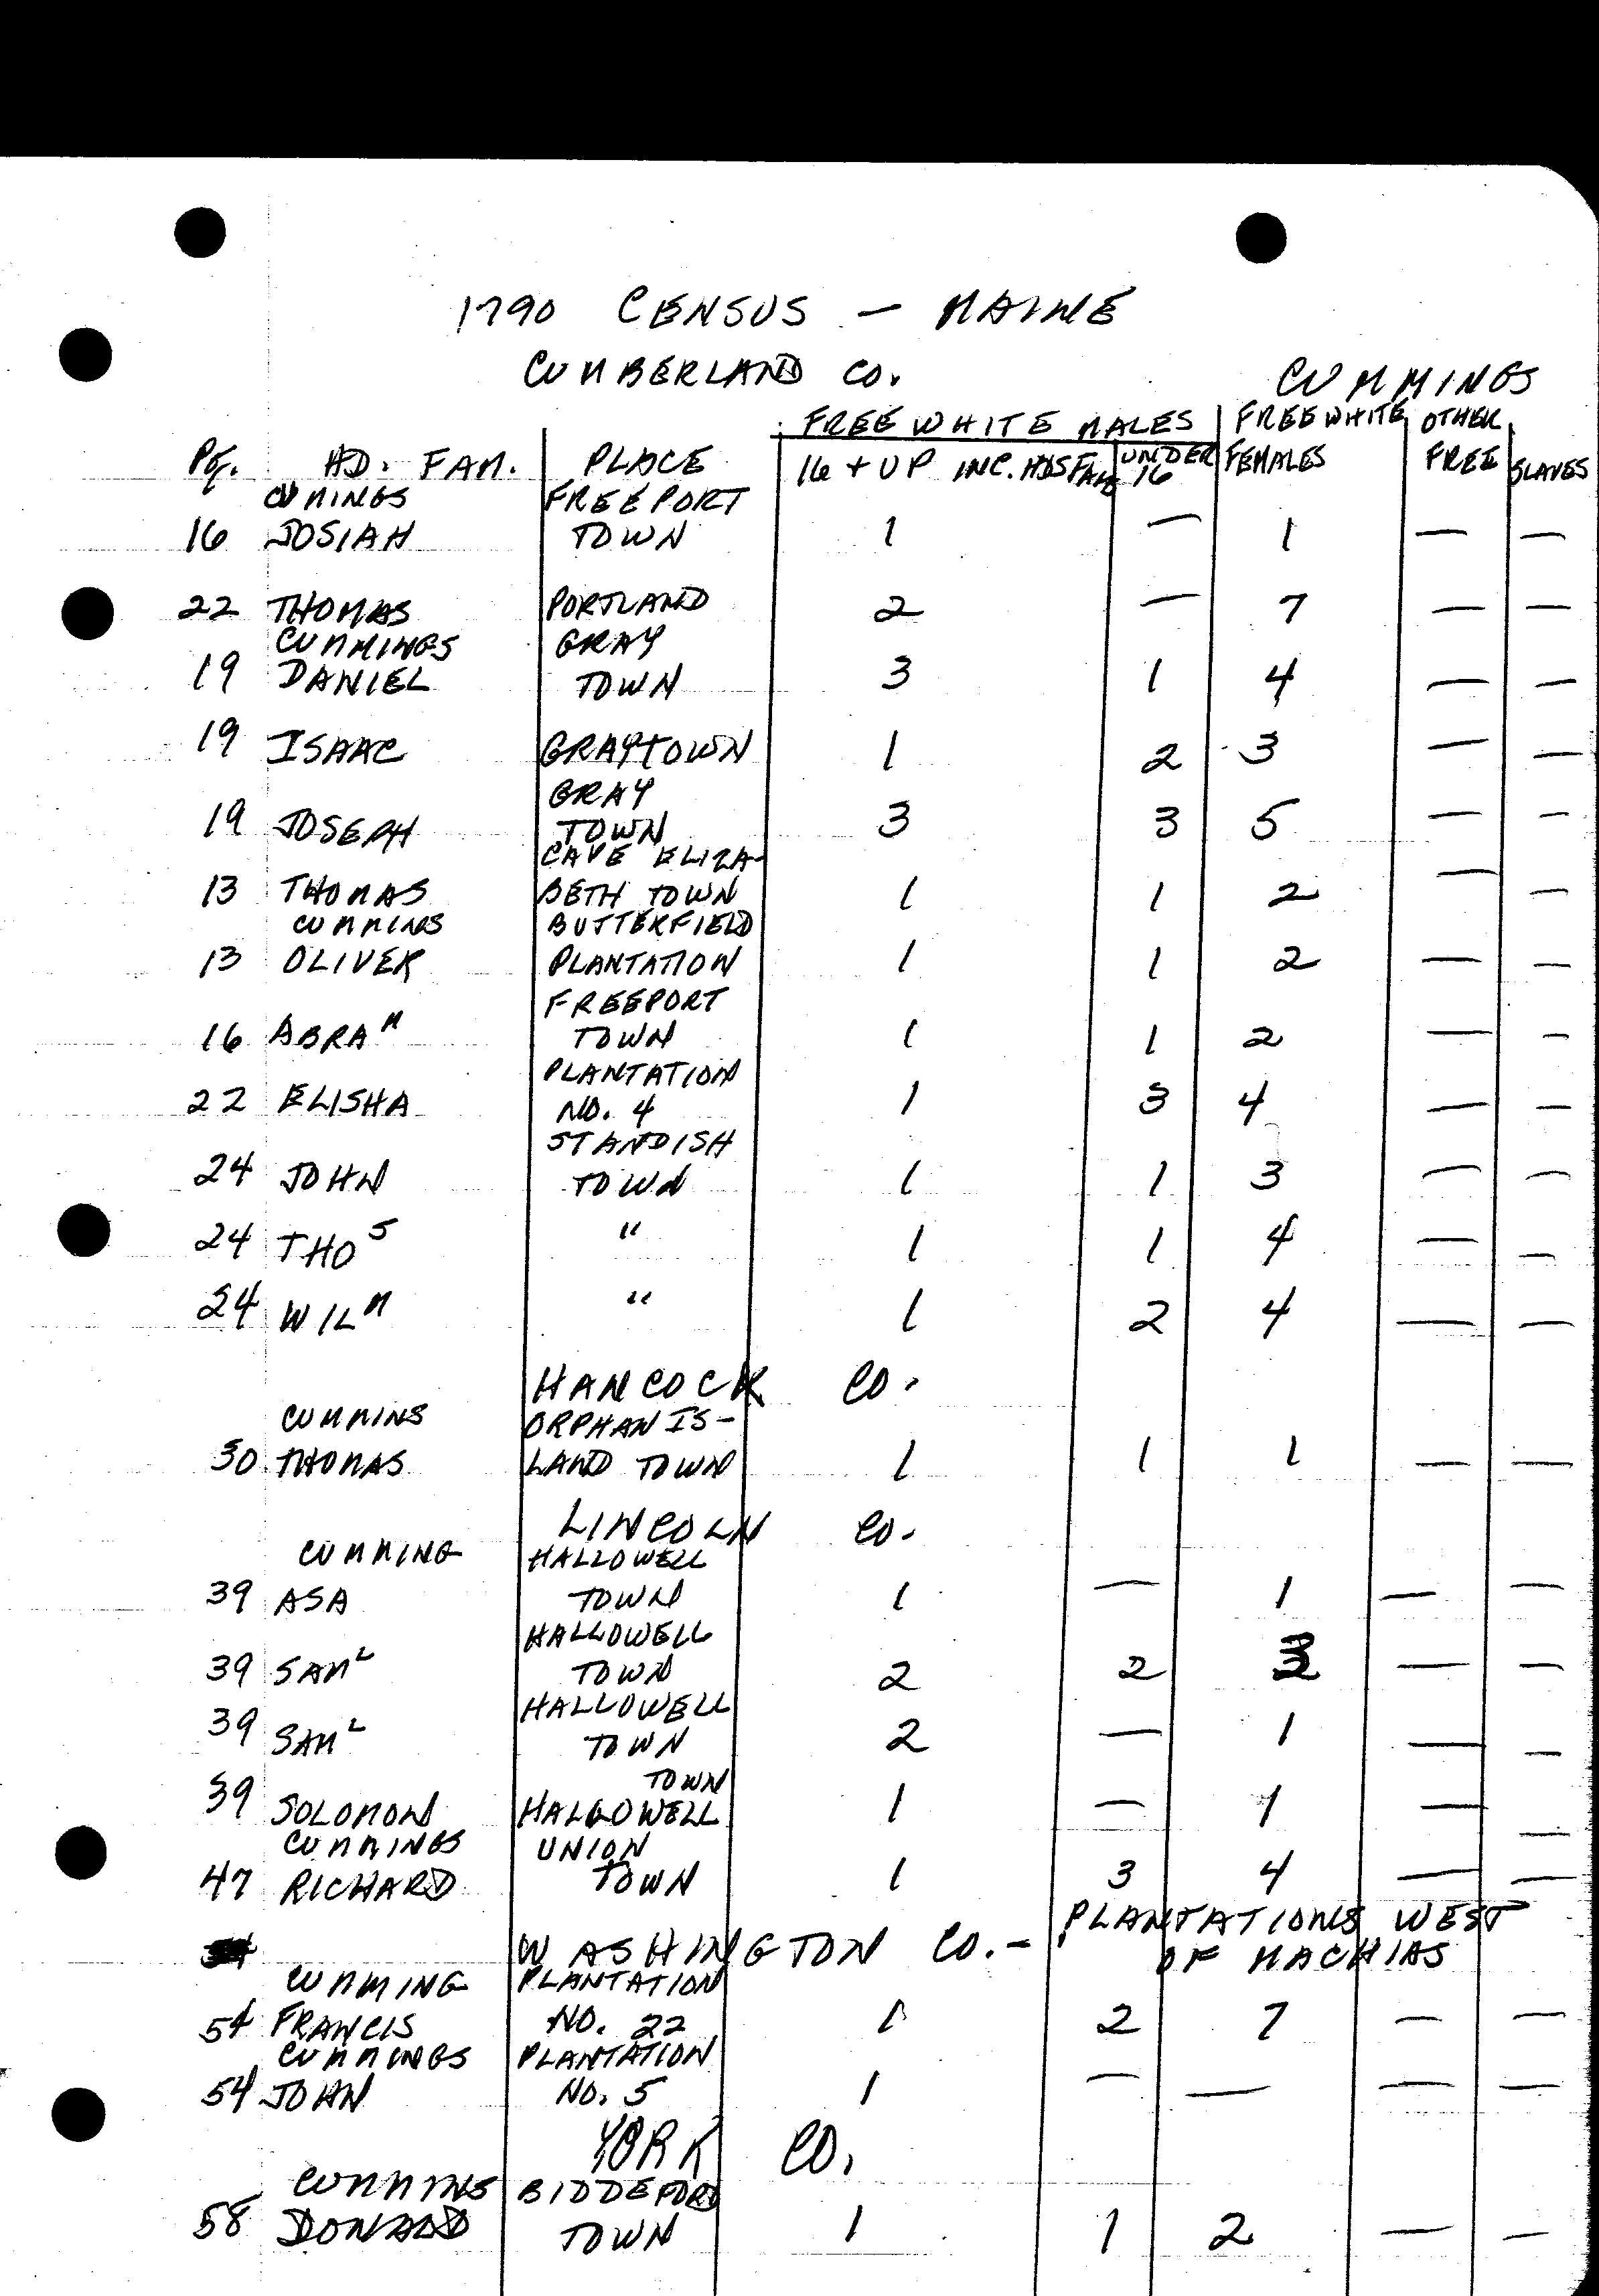 1790 CENSUS — MAINE
CUMBERLAND CO.
CUMMINGS
FREE WHITE MALES FREE WHITE OTHER
Pg. HD. FAM. PLACE 16 + UP INC. HDS FAM UNDER 16 FEMALES FREE SLAVES
CUMINGS FREEPORT
16 JOSIAH TOWN 1 — 1 — —
22 THOMAS PORTLAND 2 — 7 — —
CUMMINGS GRAY
19 DANIEL TOWN 3 1 4 — —
19 ISAAC GRAYTOWN 1 2 3 — —
GRAY
19 JOSEPH TOWN 3 3 5 — —
CAPE ELIZA-
13 THOMAS BETH TOWN 1 1 2 — —
CUMMINS BUTTERFIELD
13 OLIVER PLANTATION 1 1 2 — —
FREEPORT
16 ABRAM TOWN 1 1 2 — —
PLANTATION
22 ELISHA NO. 4 1 3 4 — —
STANDISH
24 JOHN TOWN 1 1 3 — —
24 THOS " 1 1 4 — —
24 WILM " 1 2 4 — —
HANCOCK CO.
CUMMINS ORPHAN IS-
30 THOMAS LAND TOWN 1 1 1 — —
LINCOLN CO.
CUMMING HALLOWELL
39 ASA TOWN 1 — 1 — —
HALLOWELL
39 SAML TOWN 2 2 3 — —
HALLOWELL
39 SAML TOWN 2 — 1 — —
TOWN
39 SOLOMON HALLOWELL 1 — 1 — —
CUMMINGS UNION
47 RICHARD TOWN 1 3 4 — —
WASHINGTON CO. — PLANTATIONS WEST
OF MACHIAS
CUMMING PLANTATION
54 FRANCIS NO. 22 1 2 7 — —
CUMMINGS PLANTATION
54 JOHN NO. 5 1 — — — —
YORK CO.
CUMMINS BIDDEFORD
58 DONALD TOWN 1 1 2 — —